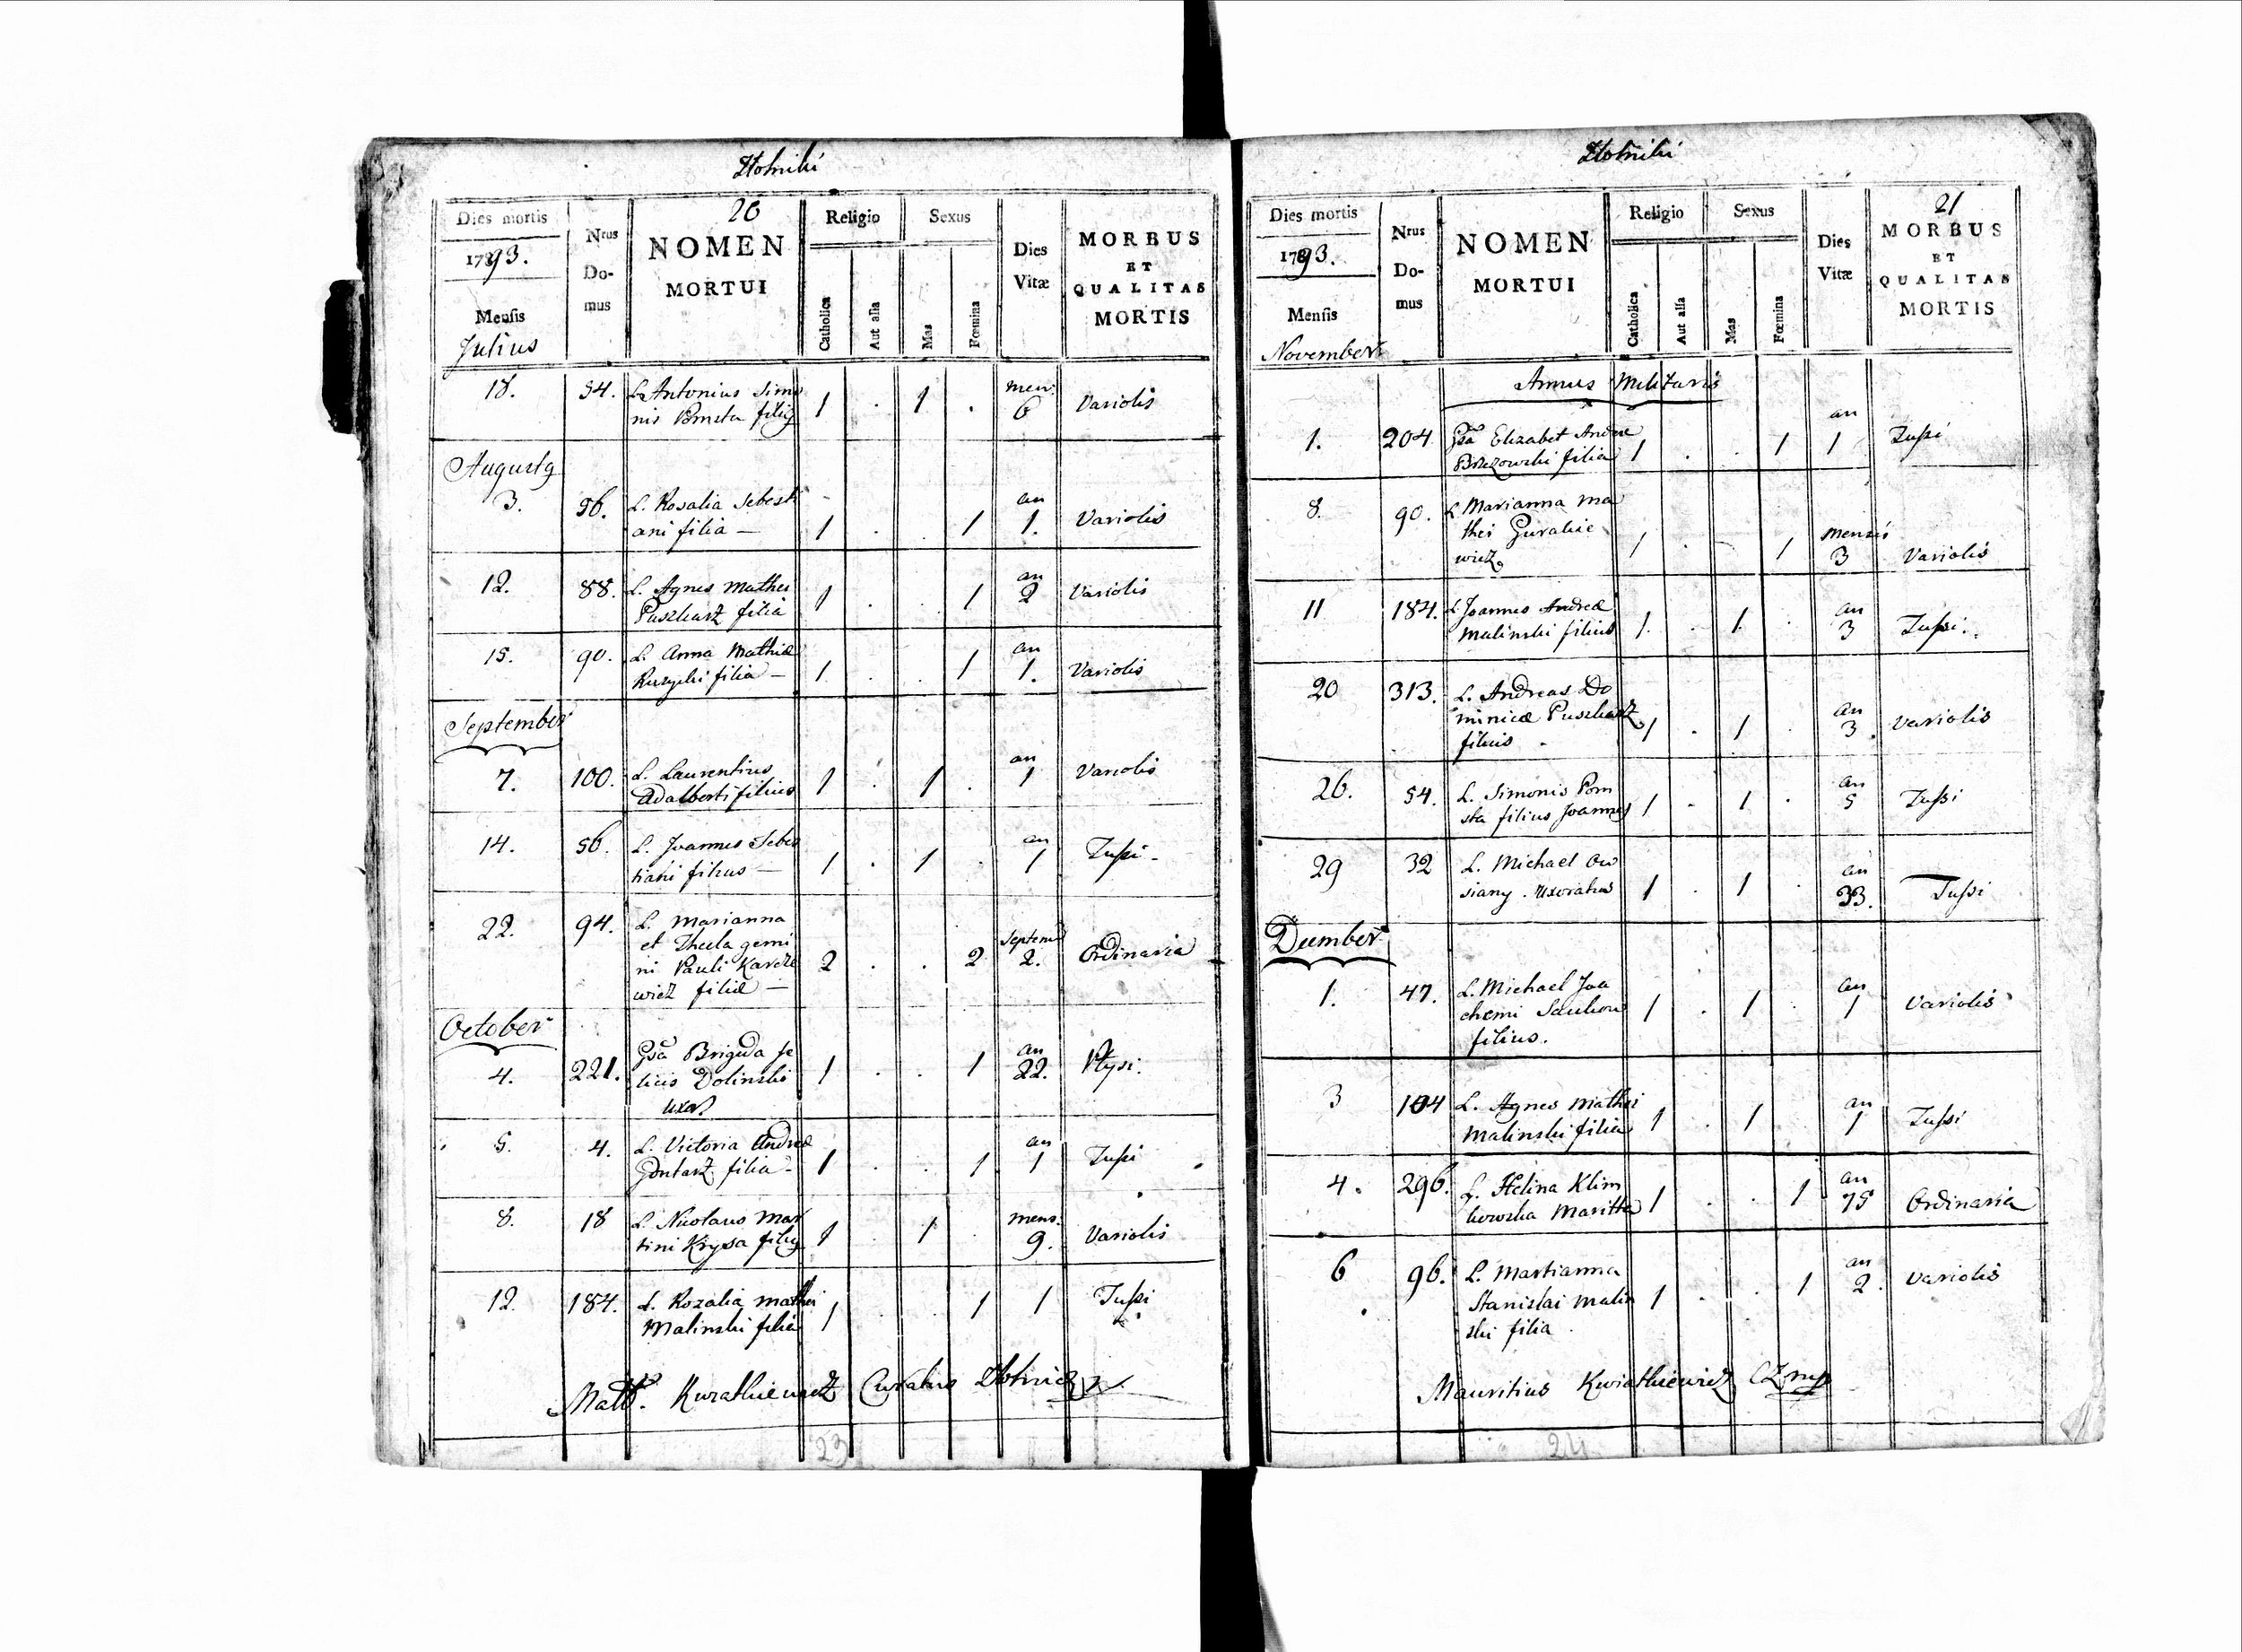 Złotniki
20
Dies mortis
1793.
Mensis
Julius
Nrus Do-mus
NOMEN
MORTUI
Religio
Catholica
Aut alia
Sexus
Mas
Fœmina
Dies Vitæ
MORBUS
ET
QUALITAS
MORTIS
18. 54. L. Antonius Simo 1 . 1 . men: 6 Variolis
nis Pomsta filig
Augustg
3. 56. L. Rosalia Sebesti 1 . . 1 an 1. Variolis
ani filia —
12. 88. L. Agnes Mathei 1 . . 1 an 2 Variolis
Puszkarz filia
15. 90. L. Anna Mathiæ 1 . . 1 an 1. Variolis
filia —
September
7. 100. L. Laurentius 1 . 1 . an 1 Variolis
Adalberti filius
14. 56. L. Joannes Sebes 1 . 1 . an 1 Tussi -
tiani filius —
22. 94. L. Marianna 2 . . 2 Septem 2. Ordinaria
et Thecla gemi
ni Pauli Karcze
wicz filiæ —
October
4. 221. Gsa Brigida Fe 1 . . 1 an 22. Ptysi.
licis Dolinski
uxor
5. 4. L. Victoria Andreæ 1 . . 1 an 1 Tussi
Gontarz filia -
8. 18 L. Nicolaus Mar 1 . 1 . mens. 9. Variolis
tini Krysa filig
12. 184. L. Rozalia Mathei 1 . . 1 1 Tussi
Malinski filia
Matt. Kurathiewicz Curatus
23
Złotniki
21
Dies mortis
1793.
Mensis
November
Nrus Do-mus
NOMEN
MORTUI
Religio
Catholica
Aut alia
Sexus
Mas
Fœmina
Dies Vitæ
MORBUS
ET
QUALITAS
MORTIS
Annus Militaris
1. 204 Gsa Elizabet Andreæ 1 . . 1 an 1 Tussi
Brzezowski filia
8. 90. L. Marianna Ma 1 . . 1 Mensis 3 Variolis
thei Gurakie
wicz
11 184. L. Joannes Andreæ 1. . 1. . an 3 Tussi.
Malinski filius
20 313. L. Andreas Do 1 . 1 . an 3. Variolis
minicæ Puszkarz
filius .
26. 54. L. Simonis Pom 1 . 1 . an 5 Tussi
sta filius Joannes
29 32 L. Michael Ow 1 . 1 . an 33. Tussi
siany . Uxoratus
Decumber
1. 47. L. Michael Joa 1 . 1 . an 1 Variolis
chemi
filius.
3 104 L. Agnes Mathei 1 . 1 an 1 Tussi
Malinski filia
4. 296. L. Helina Klim 1 . . 1 an 75 Ordinaria
kowska Maritta
6 96. L. Martianna 1 . . 1 an 2. Variolis
Stanislai Malin
ski filia .
Mauritius Kwiatkiewicz CZ mp
24